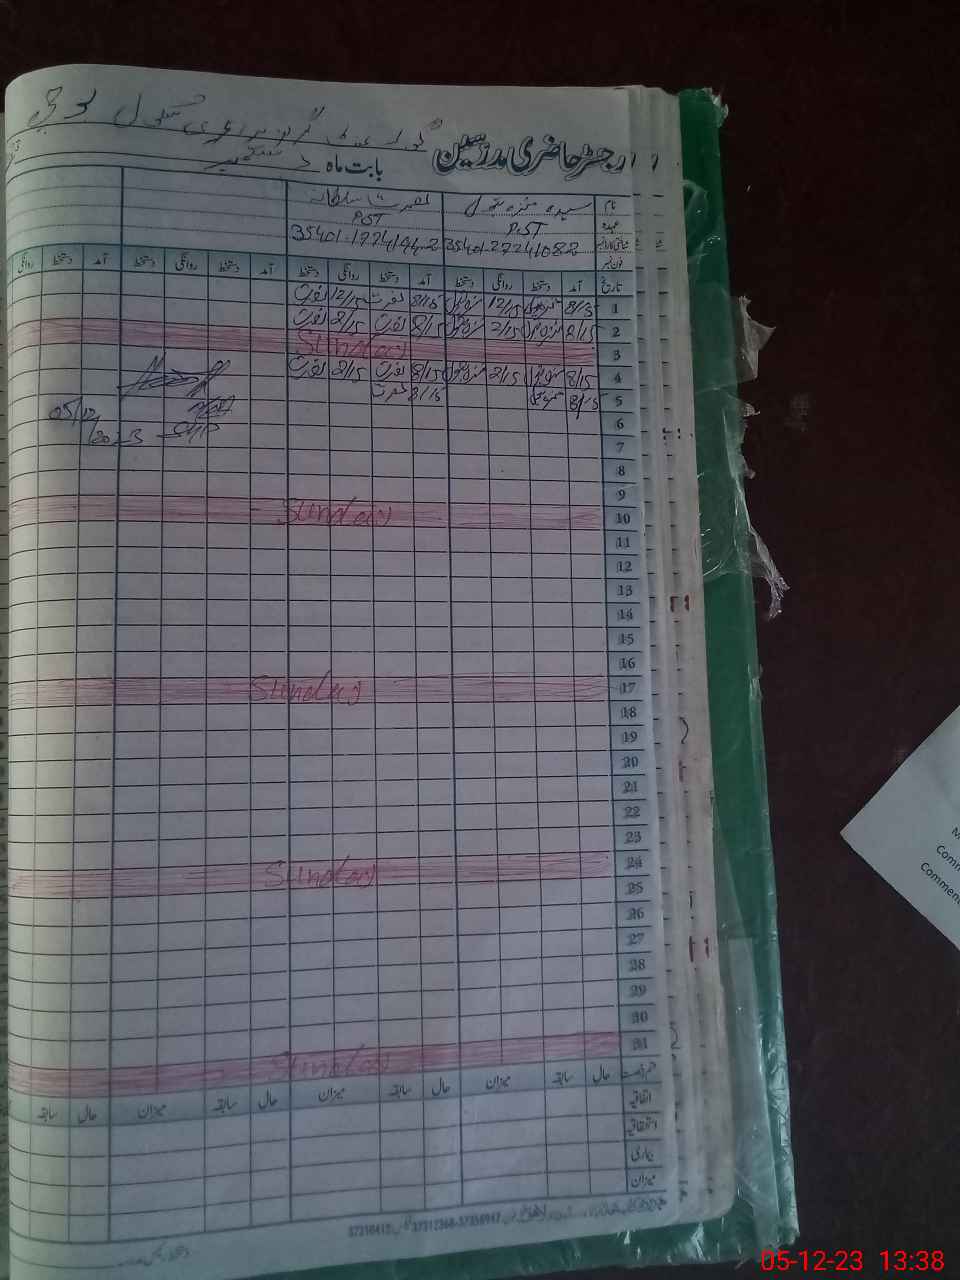 گورنمنٹ گرلز پرائمری سکول
رجسٹر حاضری مدرسین
بابت ماہ دسمبر
نام سیدہ منزہ بتول نصرت سلطانہ
عہدہ PST PST
شناختی کارڈ نمبر 35401-2724108-2
فون نمبر
تاریخ آمد دستخط روانگی دستخط آمد دستخط روانگی دستخط آمد دستخط روانگی دستخط آمد دستخط روانگی
1 8/15 12/15 8/15 نصرت 12/15 نصرت
2 8/15 2/15 8/15 نصرت 2/15 نصرت
3 Sunday
4 8/15 2/15 8/15 نصرت 2/15 نصرت
5 8/15 8/15 نصرت
05/12/2023
6
7
8
9
10 Sunday
11
12
13
14
15
16
17 Sunday
18
19
20
21
22
23
24 Sunday
25
26
27
28
29
30
31 Sunday
قسم رخصت حال سابقہ میزان حال سابقہ میزان حال سابقہ میزان حال سابقہ
اتفاقیہ
استحقاقیہ
بیماری
میزان
Comm
Commen
05-12-23 13:38